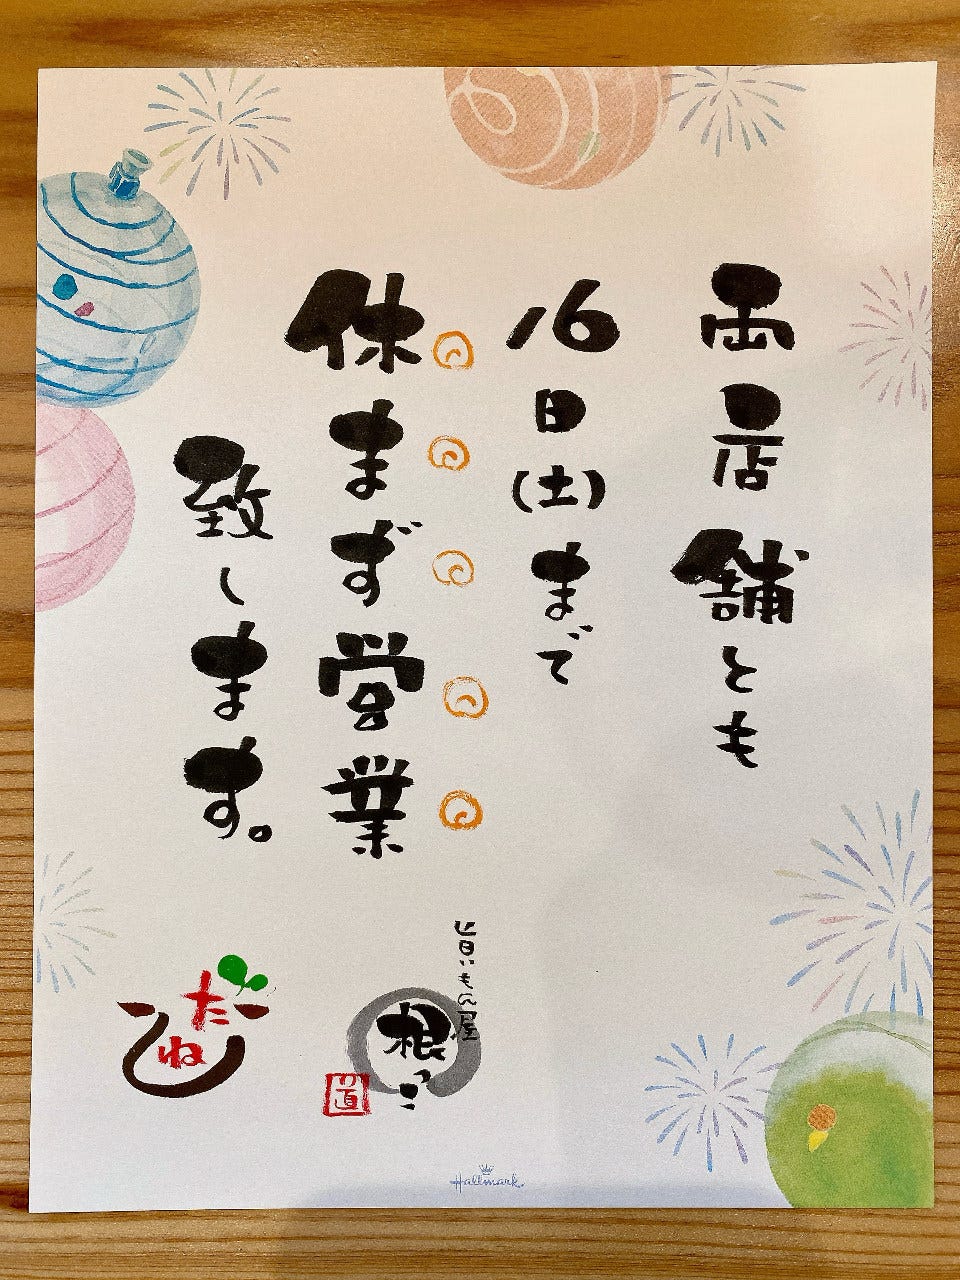 両店舗とも
16日(土)まで
休まず営業
致します。
旨いもん屋
根っこ
の道
たね
Hallmark